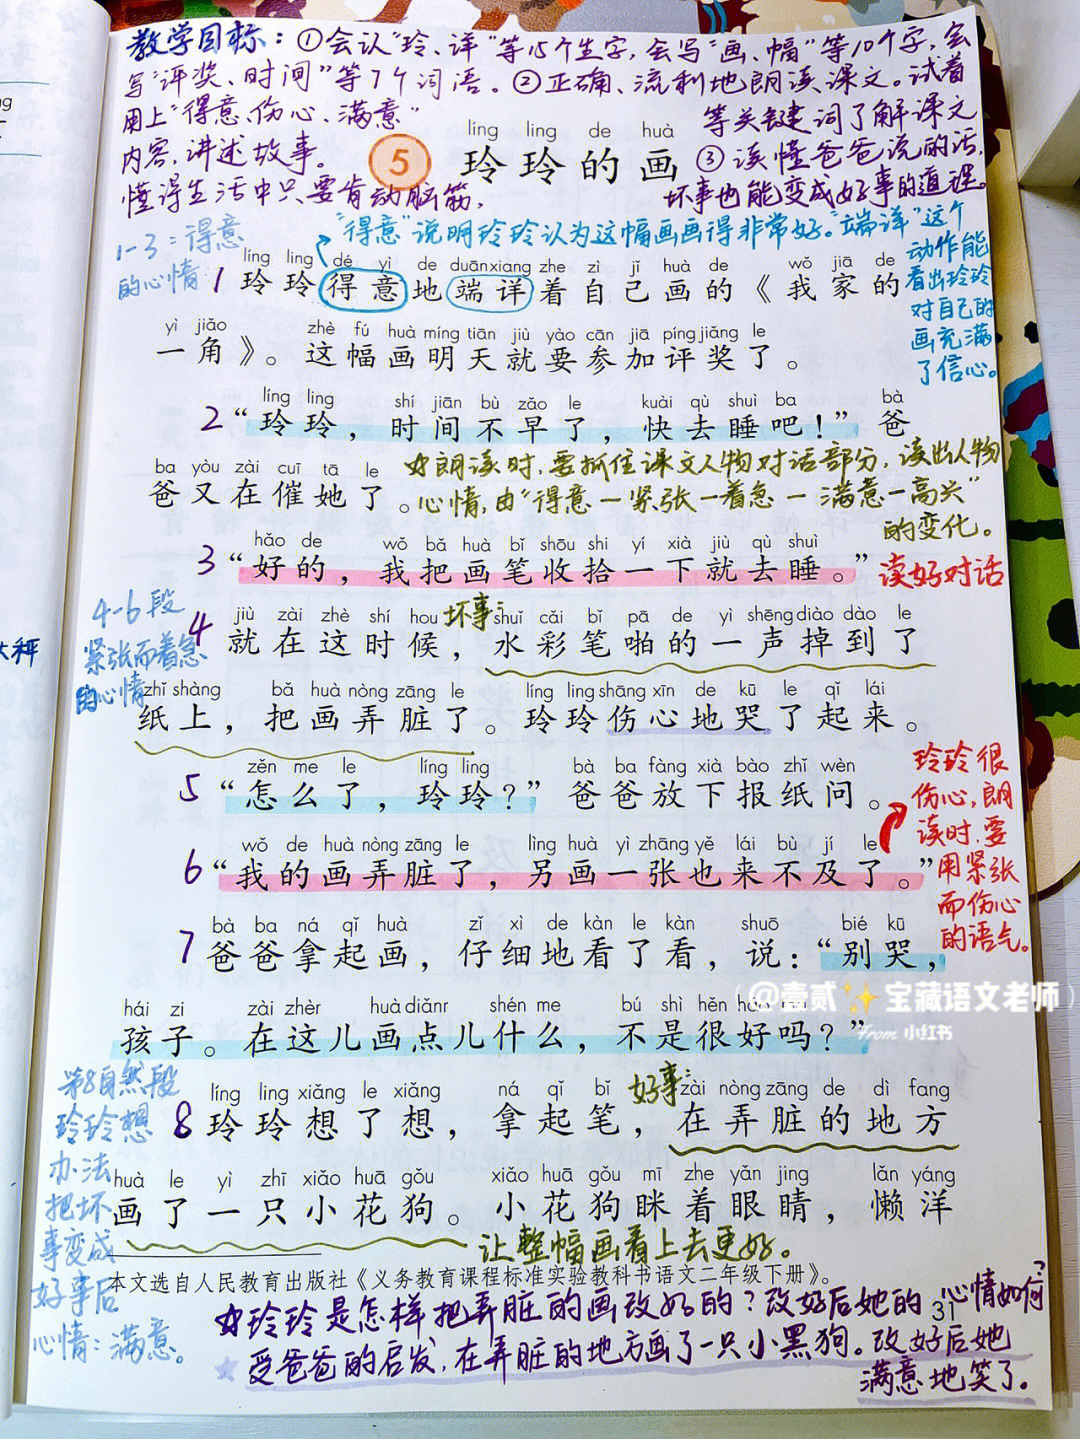 教学目标：①会认"玲、详"等15个生字，会写"画、幅"等10个字，会
写"评奖、时间"等7个词语。②正确、流利地朗读课文。试着
用上"得意、伤心、满意"
等关键词了解课文
内容，讲述故事。
③读懂爸爸说的话，
懂得生活中只要肯动脑筋，
坏事也能变成好事的道理。
líng ling de huà
5 玲玲的画
1-3：得意
的心情
"得意"说明玲玲认为这幅画画得非常好。"端详"这个
动作能
看出玲玲
对自己的
画充满
了信心。
líng ling dé yì de duān xiang zhe zì jǐ huà de wǒ jiā de
1 玲玲得意地端详着自己画的《我家的
yì jiǎo zhè fú huà míng tiān jiù yào cān jiā píng jiǎng le
一角》。这幅画明天就要参加评奖了。
líng ling shí jiān bù zǎo le kuài qù shuì ba bà
2 "玲玲，时间不早了，快去睡吧！"爸
ba yòu zài cuī tā le
爸又在催她了。
朗读时，要抓住课文人物对话部分，读出人物
心情，由"得意—紧张—着急—满意—高兴"
的变化。
hǎo de wǒ bǎ huà bǐ shōu shi yí xià jiù qù shuì
3 "好的，我把画笔收拾一下就去睡。"
读好对话
4-6段
紧张而着急
的心情
jiù zài zhè shí hou shuǐ cǎi bǐ pā de yì shēng diào dào le
坏事：
4 就在这时候，水彩笔啪的一声掉到了
zhǐ shàng bǎ huà nòng zāng le líng ling shāng xīn de kū le qǐ lái
纸上，把画弄脏了。玲玲伤心地哭了起来。
zěn me le líng ling bà ba fàng xià bào zhǐ wèn
5 "怎么了，玲玲？"爸爸放下报纸问。
玲玲很
伤心，朗
读时，要
用紧张
而伤心
的语气。
wǒ de huà nòng zāng le lìng huà yì zhāng yě lái bù jí le
6 "我的画弄脏了，另画一张也来不及了。"
bà ba ná qǐ huà zǐ xì de kàn le kàn shuō bié kū
7 爸爸拿起画，仔细地看了看，说："别哭，
@壹贰✨宝藏语文老师
from 小红书
hái zi zài zhèr huà diǎnr shén me bú shì hěn hǎo
孩子。在这儿画点儿什么，不是很好吗？"
第8自然段
玲玲想
办法
把坏
事变成
好事后
心情：满意。
líng ling xiǎng le xiǎng ná qǐ bǐ zài nòng zāng de dì fang
好事：
8 玲玲想了想，拿起笔，在弄脏的地方
huà le yì zhī xiǎo huā gǒu xiǎo huā gǒu mī zhe yǎn jing lǎn yáng
画了一只小花狗。小花狗眯着眼睛，懒洋
让整幅画看上去更好。
本文选自人民教育出版社《义务教育课程标准实验教科书语文二年级下册》。
31
玲玲是怎样把弄脏的画改好的？改好后她的心情如何？
受爸爸的启发，在弄脏的地方画了一只小黑狗。改好后她
满意地笑了。